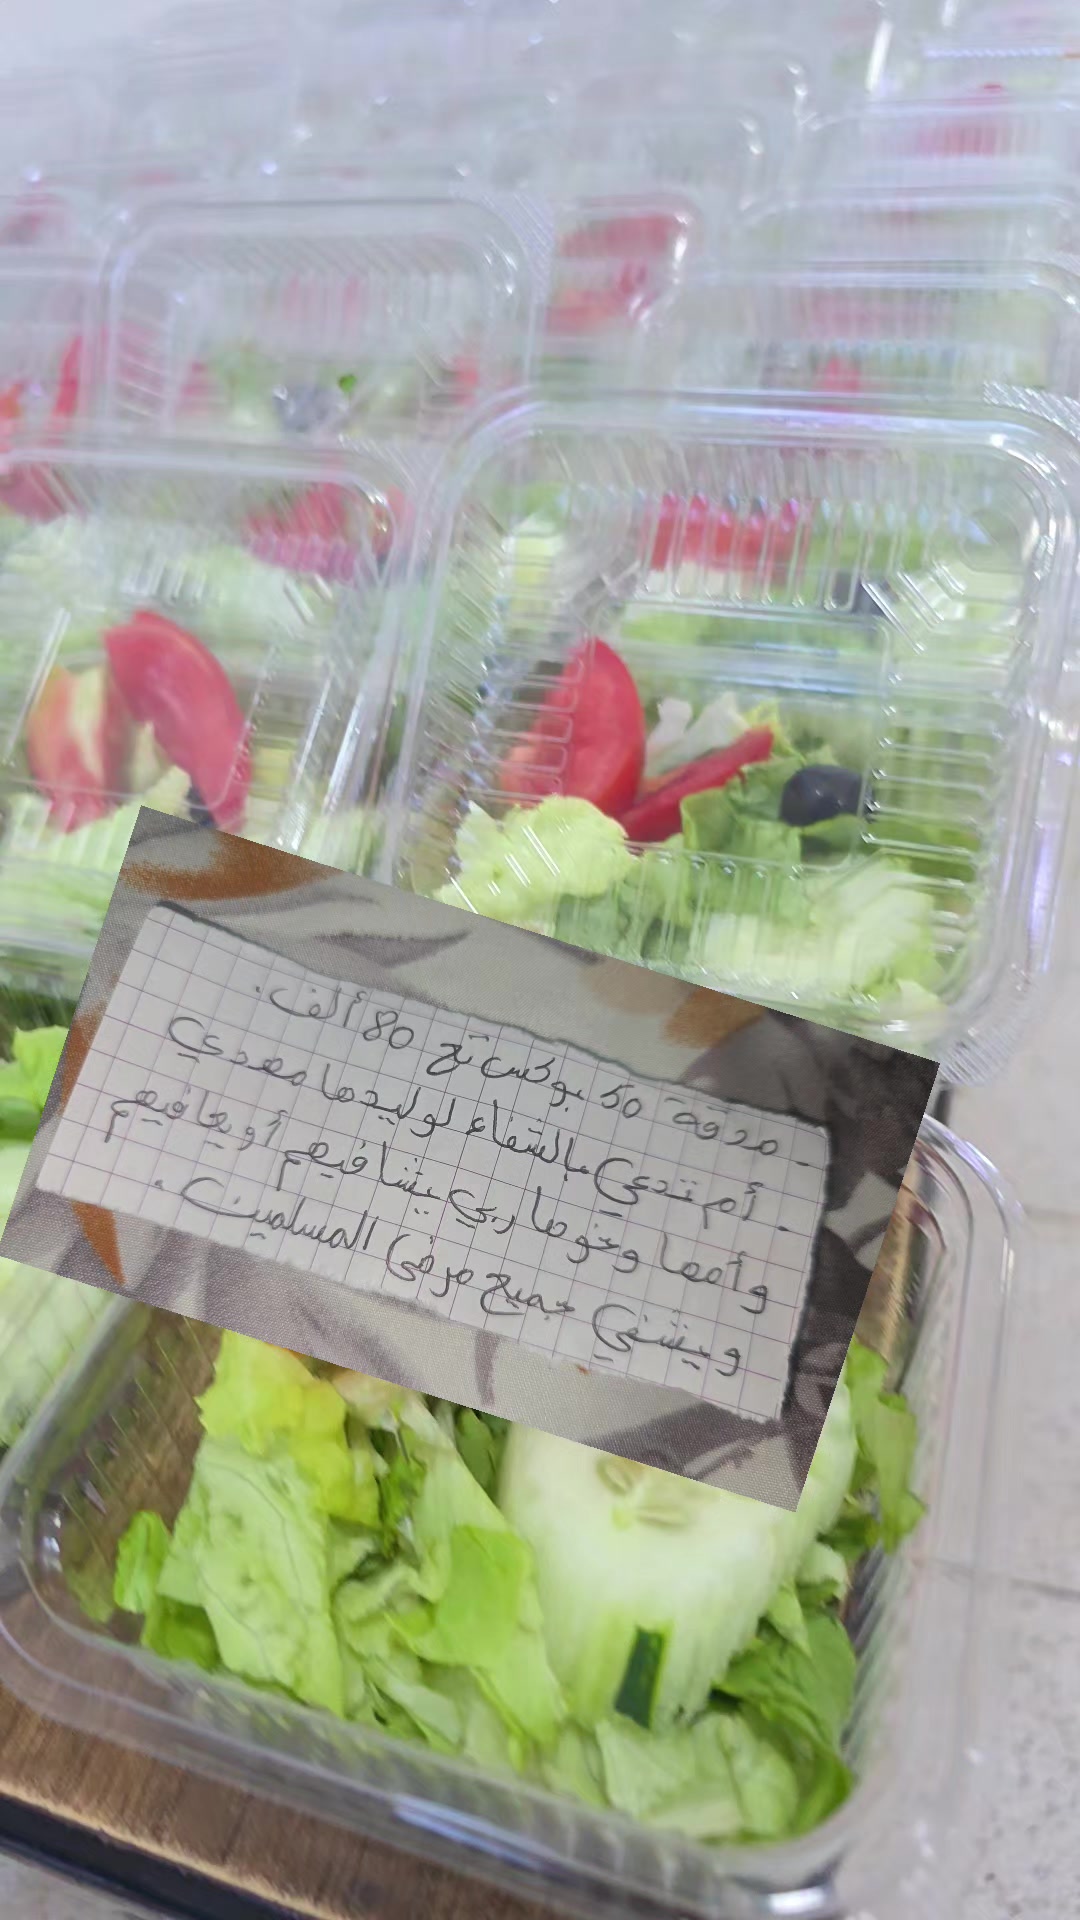 - صدقة 50 بوكس تع 80 ألف.
- أم تدعي بالشفاء لوليدها مهدي
وأمها وخوها ربي يشافيهم أويعافيهم
ويشفي جميع مرضى المسلمين.